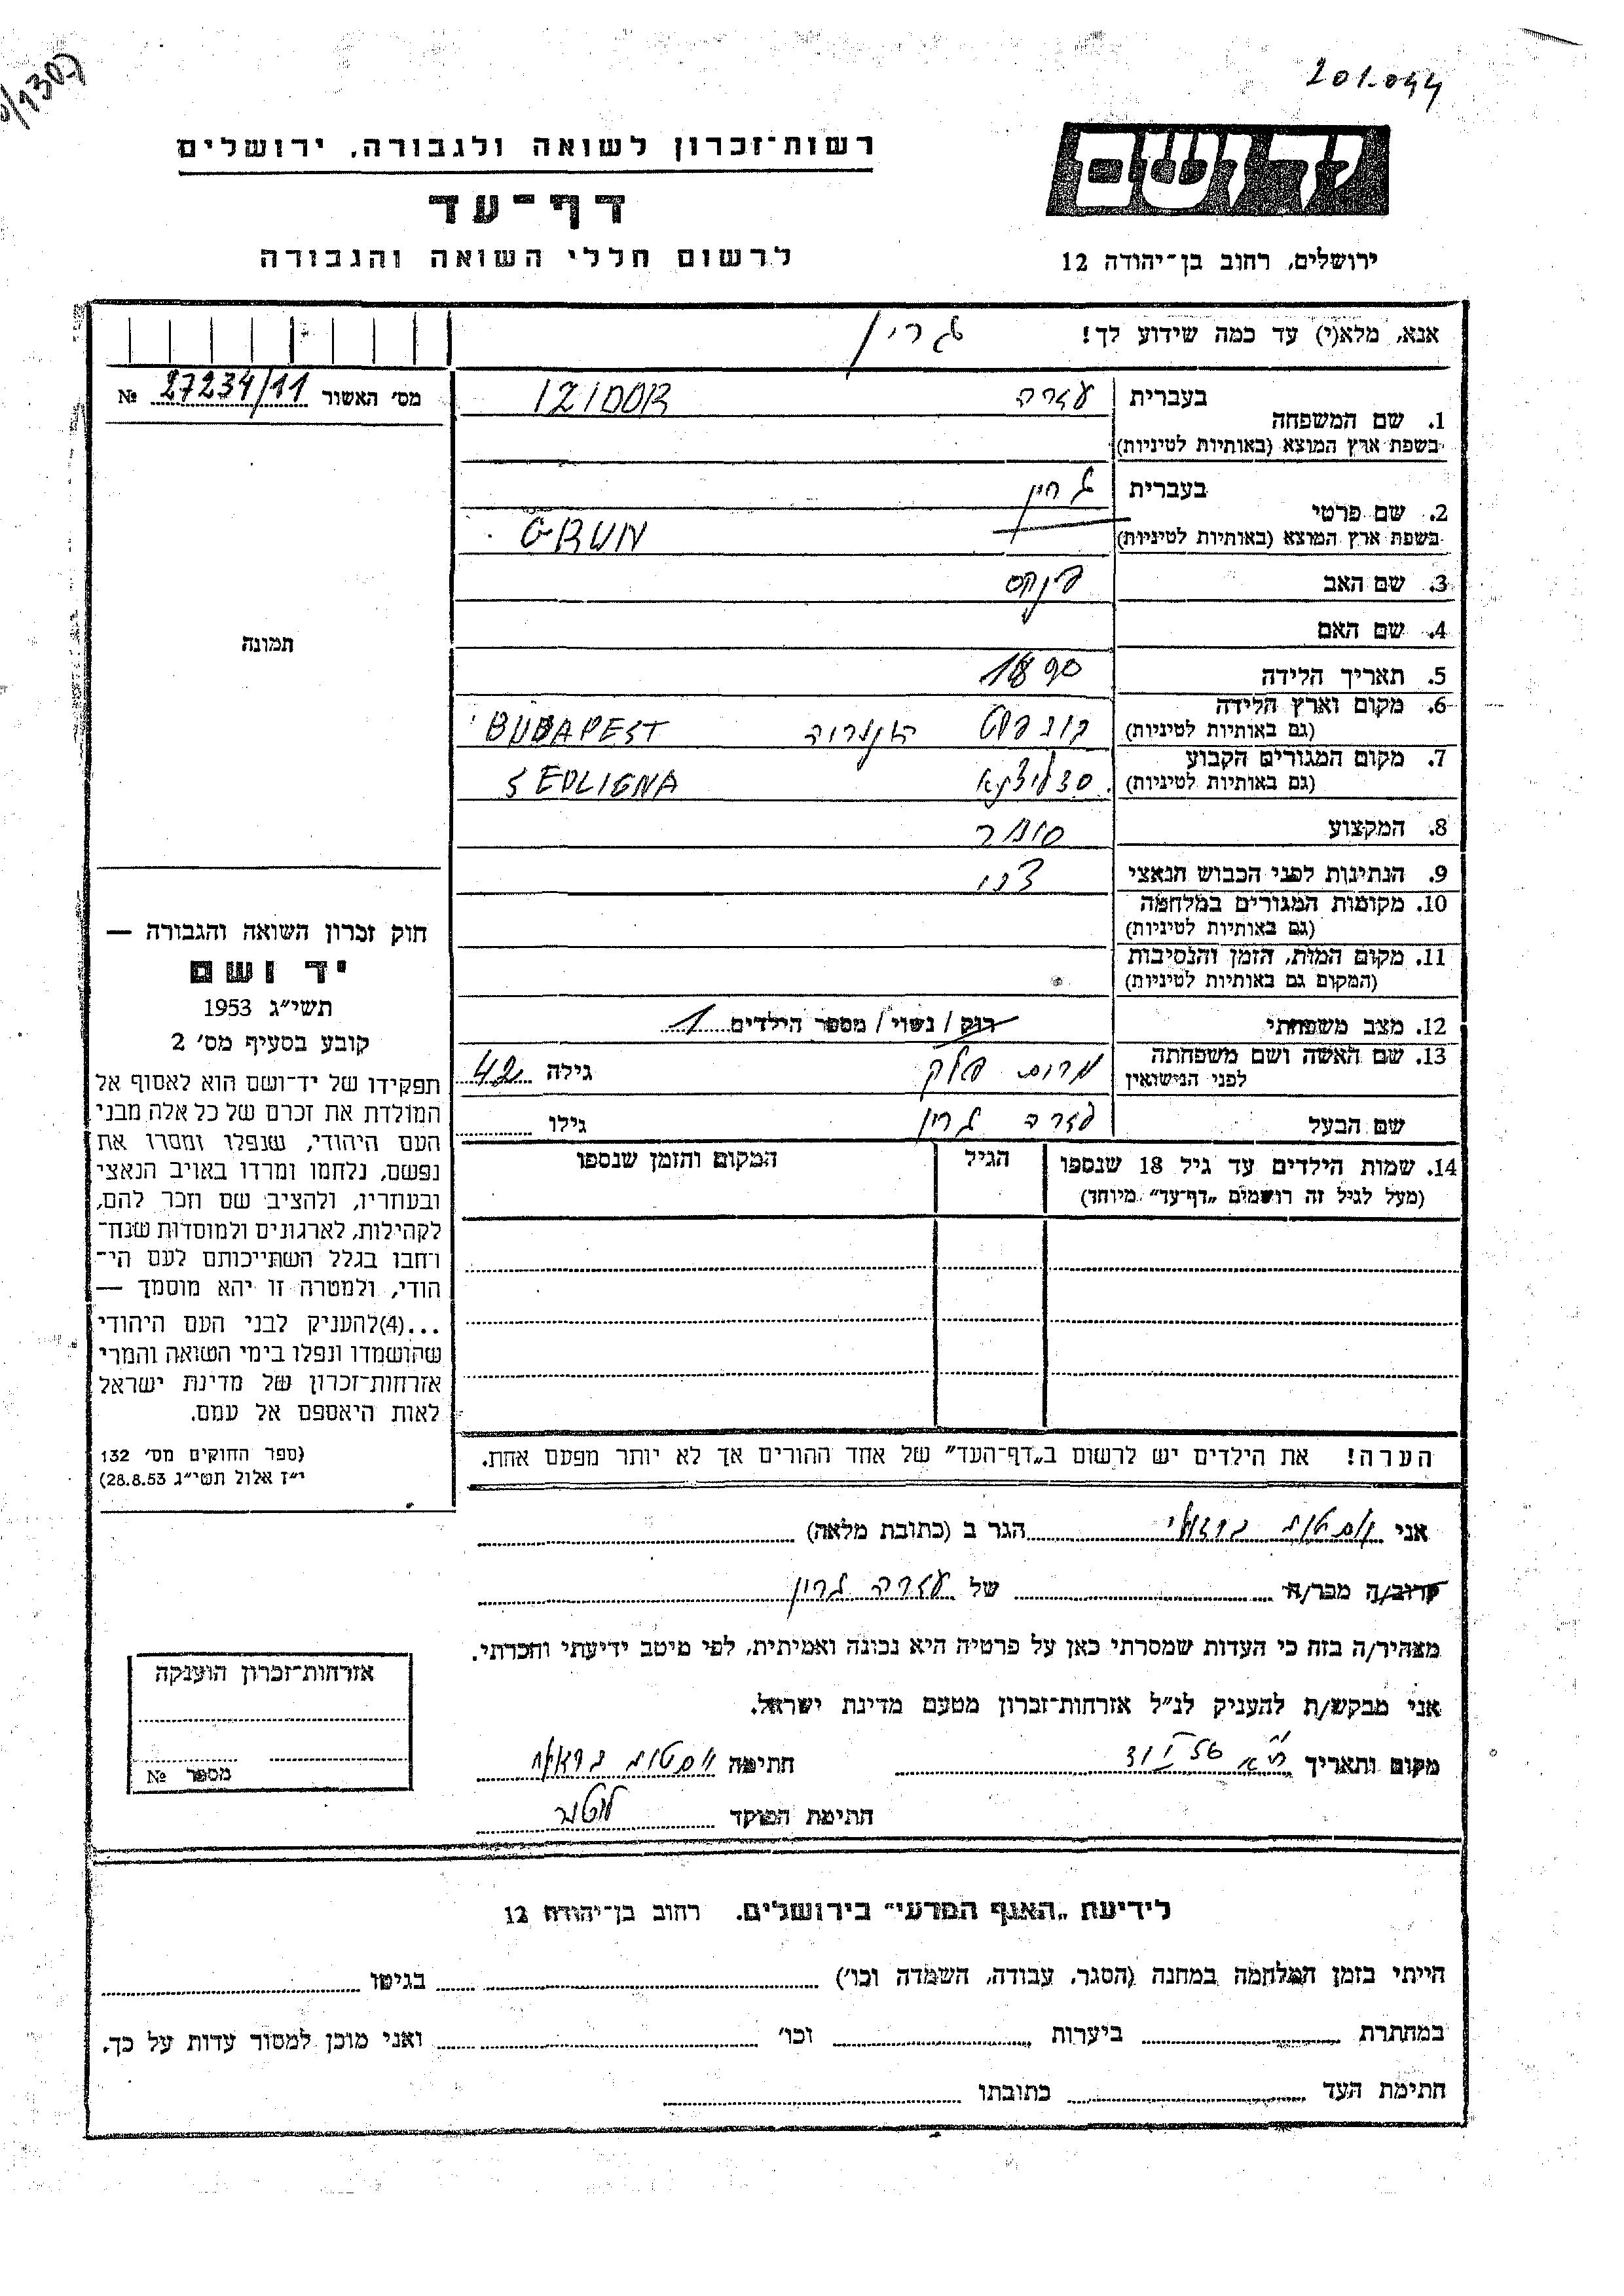 201.044
/1307
רשות־זכרון לשואה ולגבורה, ירושלים
דף־עד
לרשום חללי השואה והגבורה
יד ושם
ירושלים, רחוב בן־יהודה 12
אנא, מלא(י) עד כמה שידוע לך!
גרין
מס׳ האשור № 27234/11
1. שם המשפחה
בעברית עזרה IZIDOR
בשפת ארץ המוצא (באותיות לטיניות)
2. שם פרטי
בעברית גרין
בשפת ארץ המוצא (באותיות לטיניות) GRUN
3. שם האב פינקס
4. שם האם
5. תאריך הלידה 1890
6. מקום וארץ הלידה
(גם באותיות לטיניות) בודפסט הונגריה BUDAPEST
7. מקום המגורים הקבוע
(גם באותיות לטיניות) SEDLIGNA
8. המקצוע סוחר
9. הנתינות לפני הכבוש הנאצי
10. מקומות המגורים במלחמה
(גם באותיות לטיניות)
11. מקום המות, הזמן והנסיבות
(המקום גם באותיות לטיניות)
12. מצב משפחתי רוק / נשוי / מספר הילדים 1
13. שם האשה ושם משפחתה
לפני הנישואין פלק גילה 42
שם הבעל עזרה גרין גילו
14. שמות הילדים עד גיל 18 שנספו הגיל המקום והזמן שנספו
(מעל לגיל זה רושמים „דף־עד" מיוחד)
הערה! את הילדים יש לרשום ב„דף־העד" של אחד ההורים אך לא יותר מפעם אחת.
תמונה
חוק זכרון השואה והגבורה —
יד ושם
תשי״ג 1953
קובע בסעיף מס׳ 2
תפקידו של יד־ושם הוא לאסוף אל
המולדת את זכרם של כל אלה מבני
העם היהודי, שנפלו ומסרו את
נפשם, נלחמו ומרדו באויב הנאצי
ובעוזריו, ולהציב שם וזכר להם,
לקהילות, לארגונים ולמוסדות שנח־
רחבו בגלל השתייכותם לעם הי־
הודי, ולמטרה זו יהא מוסמך —
...(4)להעניק לבני העם היהודי
שהושמדו ונפלו בימי השואה והמרי
אזרחות־זכרון של מדינת ישראל
לאות היאספם אל עמם.
(ספר החוקים מס׳ 132
י״ז אלול תשי״ג 28.8.53)
אני הגר ב (כתובת מלאה)
קרוב/ה מכר/ה של עזרה גרין
מצהיר/ה בזה כי העדות שמסרתי כאן על פרטיה היא נכונה ואמיתית, לפי מיטב ידיעתי והכרתי.
אני מבקש/ת להעניק לנ״ל אזרחות־זכרון מטעם מדינת ישראל.
מקום ותאריך ת״א חתימה
חתימת הפוקד
אזרחות־זכרון הוענקה
מספר №
לידיעת „האגף המדעי" בירושלים. רחוב בן־יהודה 12
הייתי בזמן המלחמה במחנה (הסגר, עבודה, השמדה וכו׳) בגיטו
במחתרת ביערות וכו׳ ואני מוכן למסור עדות על כך.
חתימת העד כתובתו